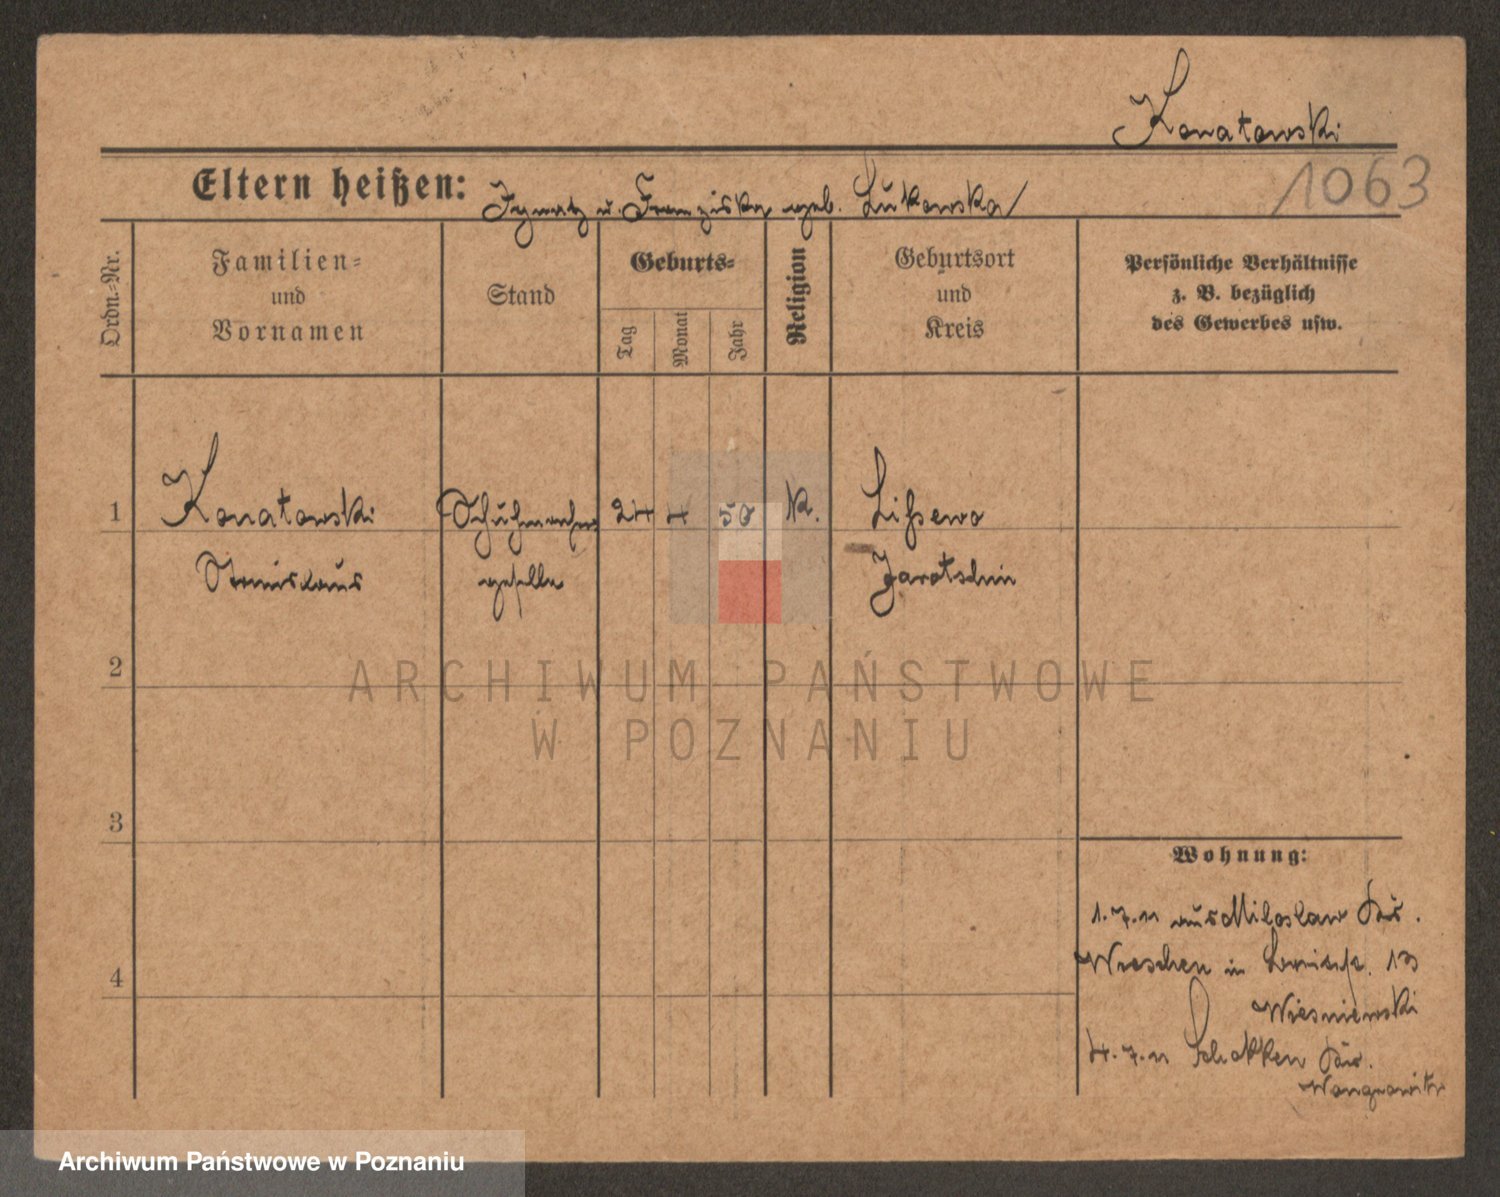 Konatowski
1063
Eltern heißen: Ignatz u. Franziska geb. Lukowska
Ordn.=Nr.
Familien=
und
Vornamen
Stand
Geburts=
Tag
Monat
Jahr
Religion
Geburtsort
und
Kreis
Persönliche Verhältnisse
z. B. bezüglich
des Gewerbes usw.
1 Konatowski Schuhmacher 24 4 50 K. Lissewo
Stanislaus geselle Jarotschin
2
3
4
Wohnung:
1.7.11 aus Miloslaw Kr.
Wreschen in 13
Wiesniewski
4.7.11 Schokken Kr.
Wongrowitz
ARCHIWUM PAŃSTWOWE
W POZNANIU
Archiwum Państwowe w Poznaniu